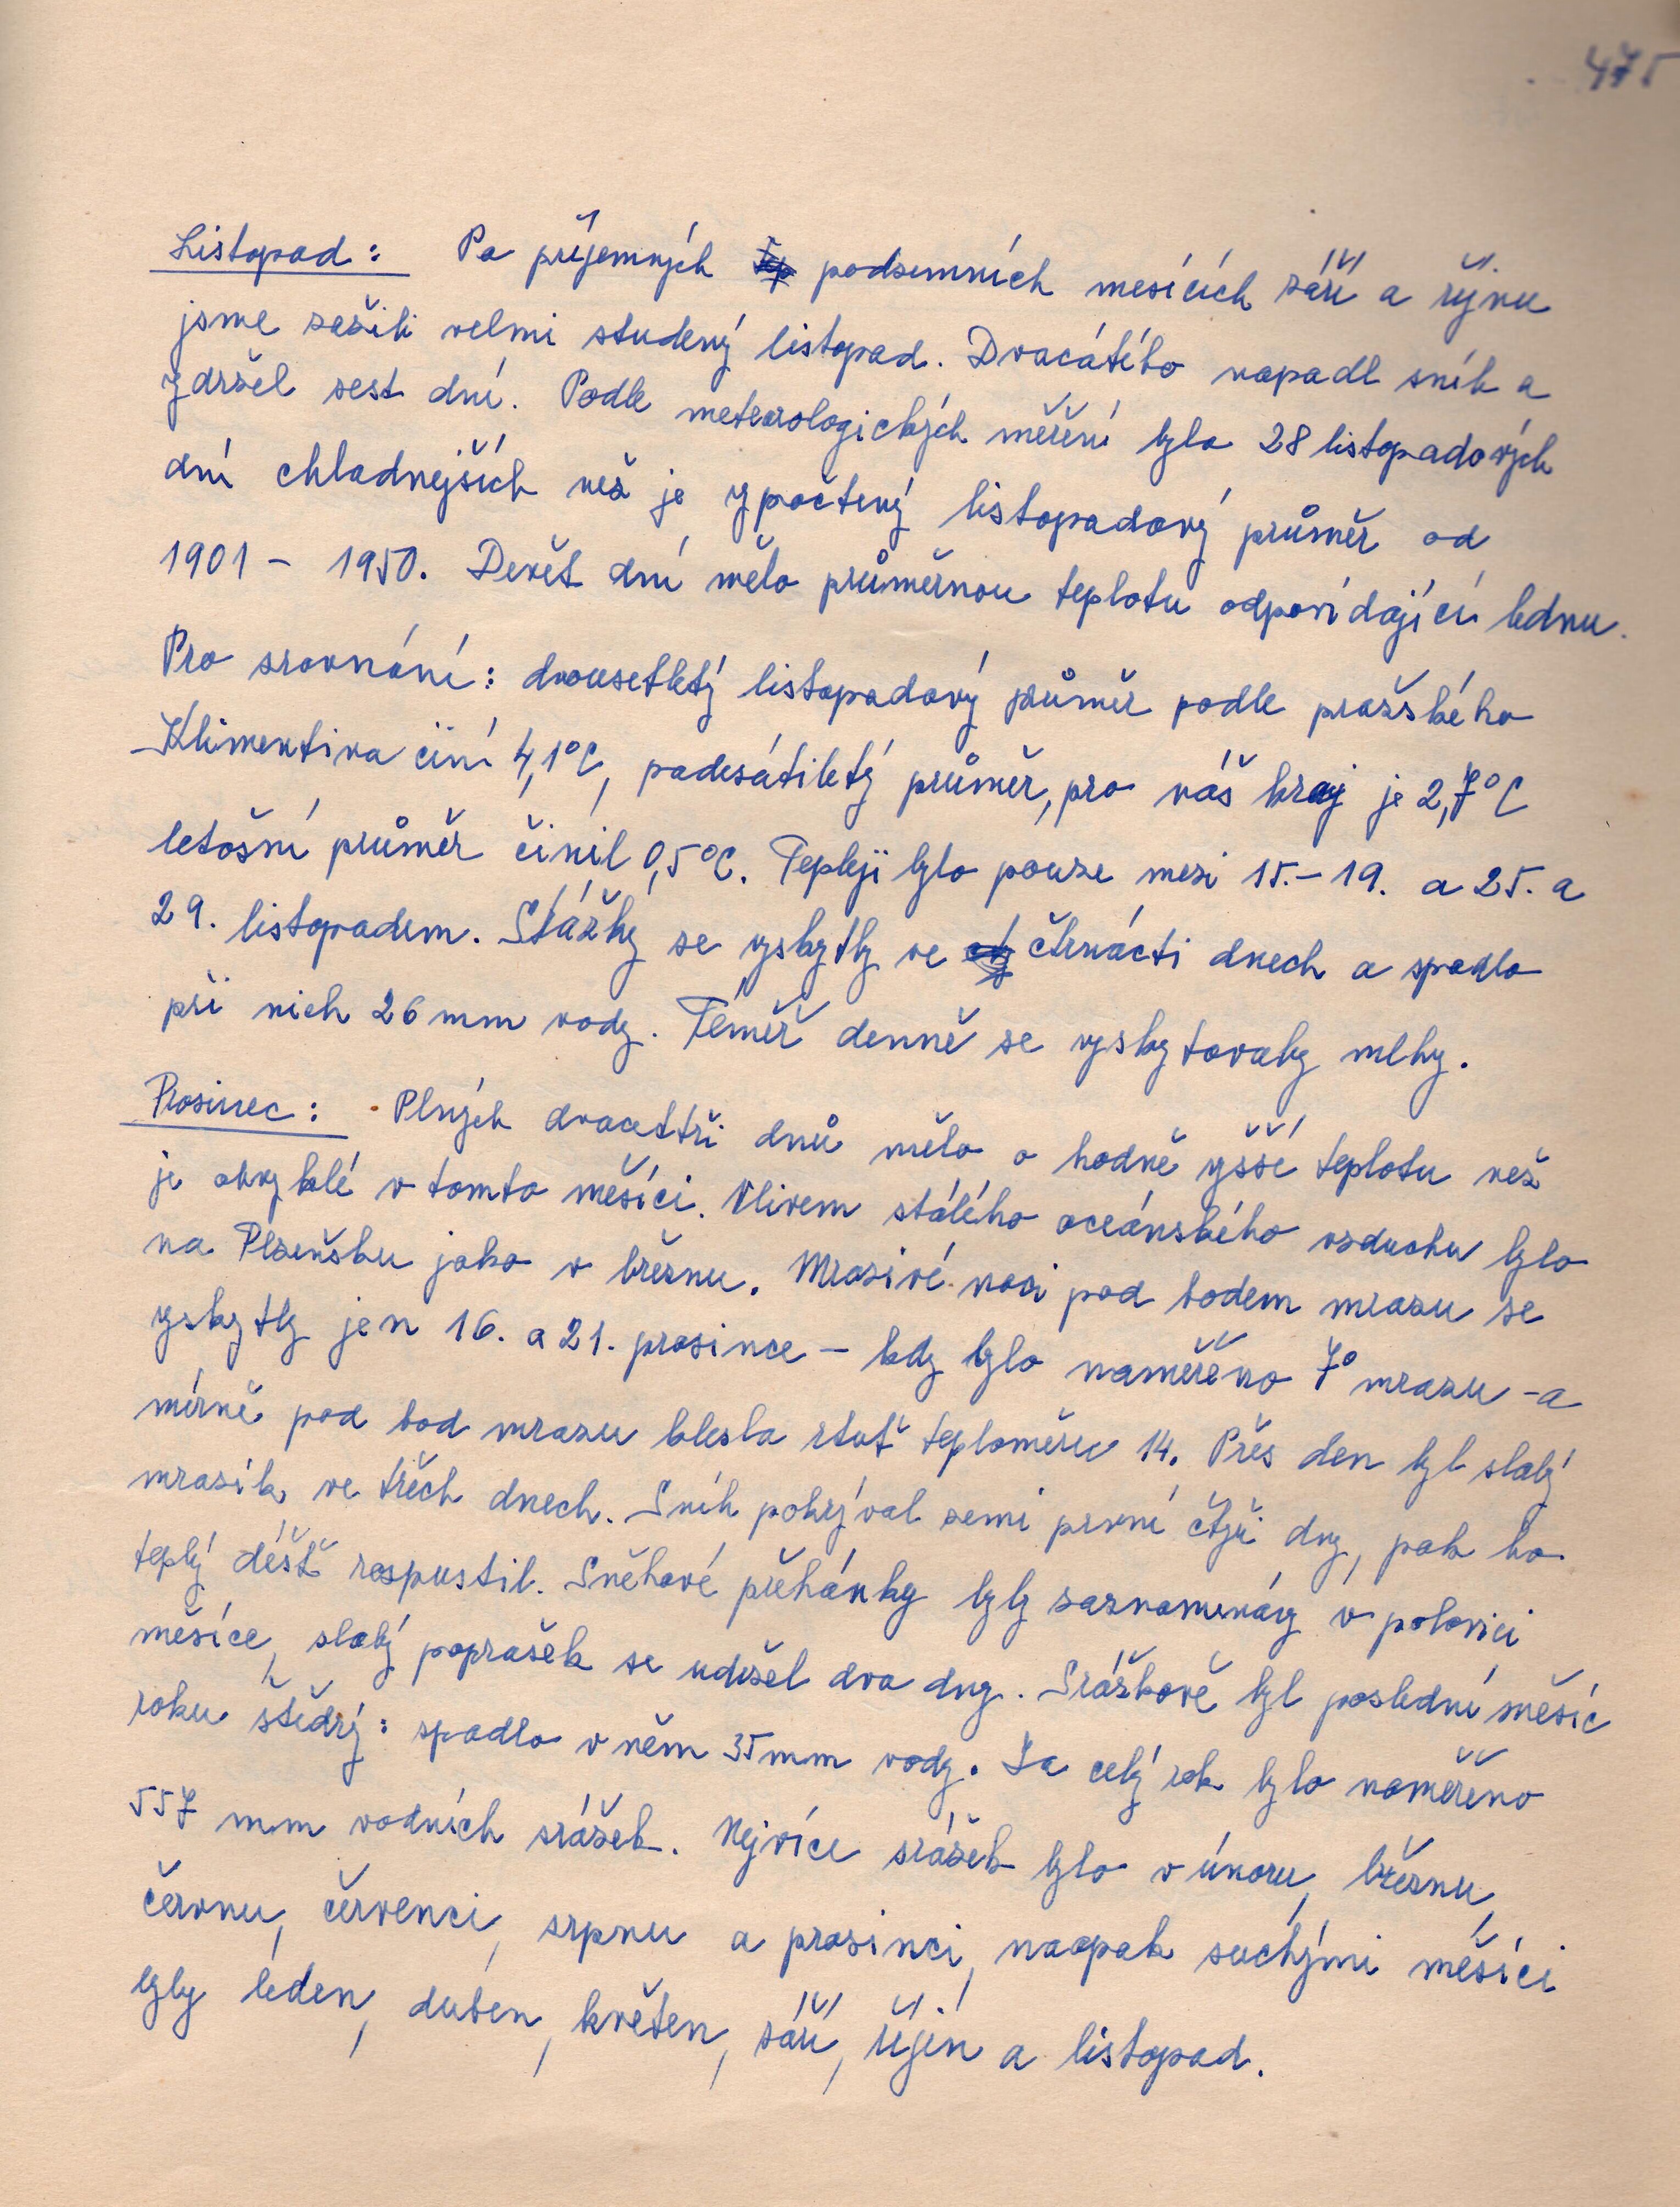 475
Listopad: Po příjemných podzimních mesících září a říjnu
jsme zažili velmi studený listopad. Dvacátého napadl sníh a
vydržel sest dní. Podle meteorologických měření bylo 28 listopadových
dní chladnejších než je vypočtený listopadový průměr od
1901 - 1950. Devět dní mělo průměrnou teplotu odpovídající lednu.
Pro srovnání: dvousetletý listopadový průměr podle pražského
Klimentina činí 4,1°C, padesátiletý průměr, pro náš kraj je 2,7°C
letošní průměr činil 0,5°C. Tepleji bylo pouze mezi 15.-19. a 25. a
29. listopadem. Srážky se vyskytly ve čtrnácti dnech a spadlo
při nich 26 mm vody. Téměř denně se vyskytovaly mlhy.
Prosinec: Plných dvacettři dnů mělo o hodně vyšší teplotu než
je obvyklé v tomto měsíci. Vlivem stálého oceánského vzduchu bylo
na Plzeňsku jako v březnu. Mrazivé noci pod bodem mrazu se
vyskytly jen 16. a 21. prosince - kdy bylo naměřeno 7° mrazu - a
mírně pod bod mrazu klesla rtuť teploměru 14. Přes den byl slabý
mrazík ve třech dnech. Sníh pokrýval zemi první čtyři dny, pak ho
teplý déšť rozpustil. Sněhové přehánky byly zaznamenány v polovici
měsíce, slabý poprašek se udržel dva dny. Srážkově byl poslední měsíc
roku štědrý: spadlo v něm 35 mm vody. Za celý rok bylo naměřeno
557 mm vodních srážek. Nejvíce srážek bylo v únoru, březnu,
červnu, červenci, srpnu a prosinci, naopak suchými měsíci
byly leden, duben, květen, září, říjen a listopad.